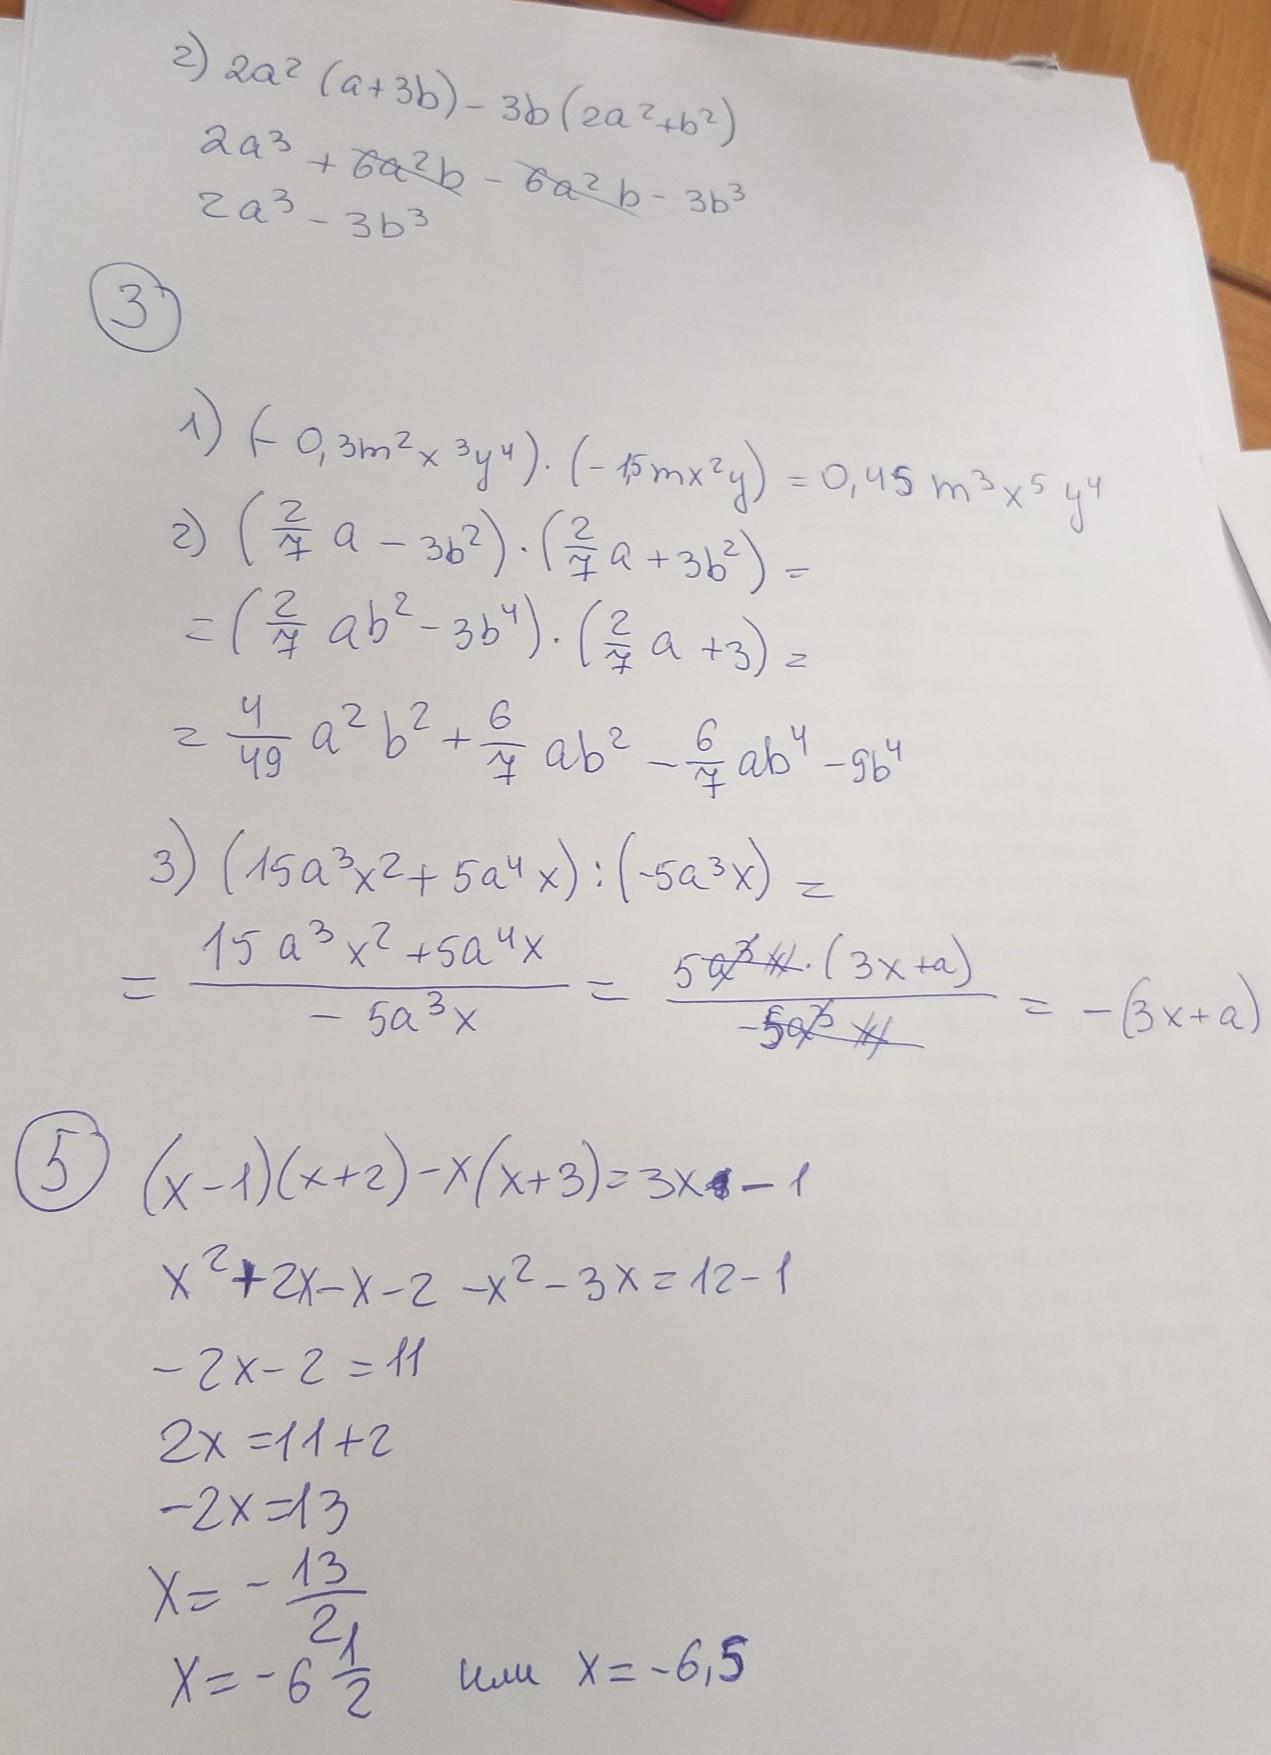 2) 2a² (a+3b) - 3b(2a²+b²)
2a³ + 6a²b - 6a²b - 3b³
2a³ - 3b³
3
1) (-0,3m²x³y⁴)·(-1,5mx²y) = 0,45m³x⁵y⁴
2) (2/7 a - 3b²)·(2/7 a + 3b²) =
= (2/7 ab² - 3b⁴)·(2/7 a + 3) =
= 4/49 a²b² + 6/7 ab² - 6/7 ab⁴ - 9b⁴
3) (15a³x² + 5a⁴x) : (-5a³x) =
= (15a³x² + 5a⁴x)/(-5a³x) = (5a³x·(3x+a))/(-5a³x) = -(3x+a)
5 (x-1)(x+2)-x(x+3)=3x-1
x²+2x-x-2-x²-3x=12-1
-2x-2=11
2x=11+2
-2x=13
x=-13/2
x=-6 1/2 или x=-6,5